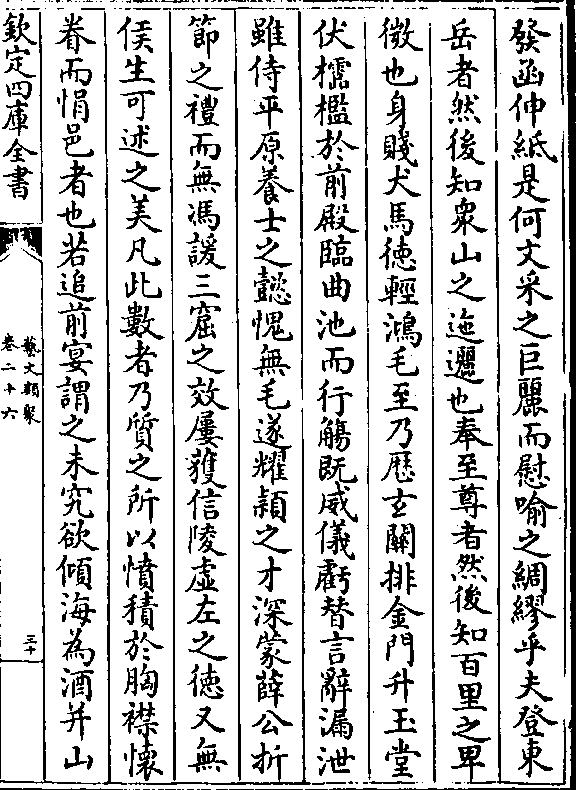 發函伸紙是何文采之巨麗而慰喻之綢繆乎夫登東
岳者然後知衆山之迤邐也奉至尊者然後知百里之卑
微也身賤犬馬徳輕鴻毛至乃歴𤣥闕排金門升玉堂
伏櫺檻於前殿臨曲池而行觴既威儀虧替言辭漏泄
雖侍平原養士之懿愧無毛遂耀頴之才深蒙薛公折
節之禮而無馮諼三窟之效屢獲信陵虚左之徳又無
侯生可述之美凡此數者乃質之所以憤積於胸襟懷
眷而悁邑者也若追前宴謂之未究欲傾海為酒并山
欽定四庫全書
藝文類聚
卷二十六
三十